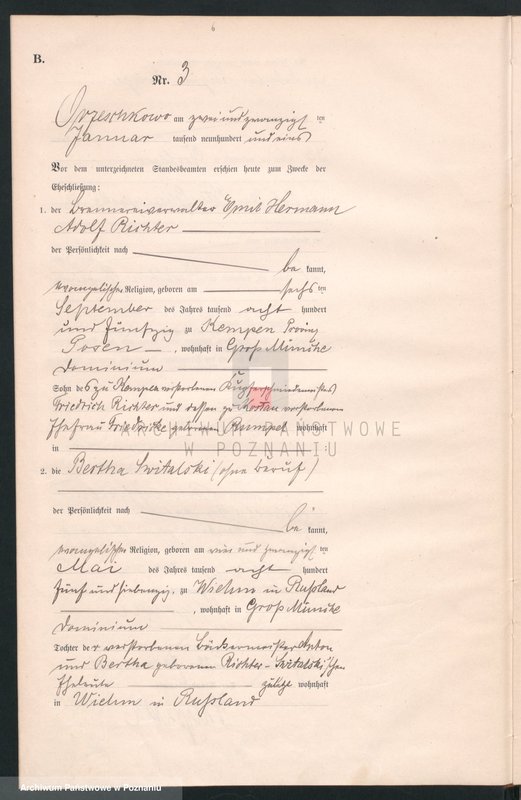 6
B.
Nr. 3
Orzeschkowo am zwei und zwanzigsten
Januar tausend neunhundert und eins
Vor dem unterzeichneten Standesbeamten erschien heute zum Zwecke der
Eheschließung:
1. der Brennereiverwalter Emil Hermann
Adolf Richter
der Persönlichkeit nach
be kannt,
evangelischer Religion, geboren am sechsten
September des Jahres tausend acht hundert
und fünfzig zu Kempen Provinz
Posen, wohnhaft in Groß Münche
Dominium
Sohn des zu Kempen verstorbenen Kupferschmiedemeisters
Friedrich Richter und dessen zu Kosten verstorbenen
Ehefrau Friederike geborenen Rumpel wohnhaft
in
ARCHIWUM PAŃSTWOWE
W POZNANIU
2. die Bertha Switalski (ohne Beruf)
der Persönlichkeit nach
be kannt,
evangelischer Religion, geboren am vier und zwanzigsten
Mai des Jahres tausend acht hundert
fünf und siebenzig zu Wielun in Rußland
, wohnhaft in Groß Münche
Dominium
Tochter der verstorbenen Bäckermeister Anton
und Bertha geborenen Richter - Switalski'schen
Eheleute zuletzt wohnhaft
in Wielun in Rußland
Archiwum Państwowe w Poznaniu